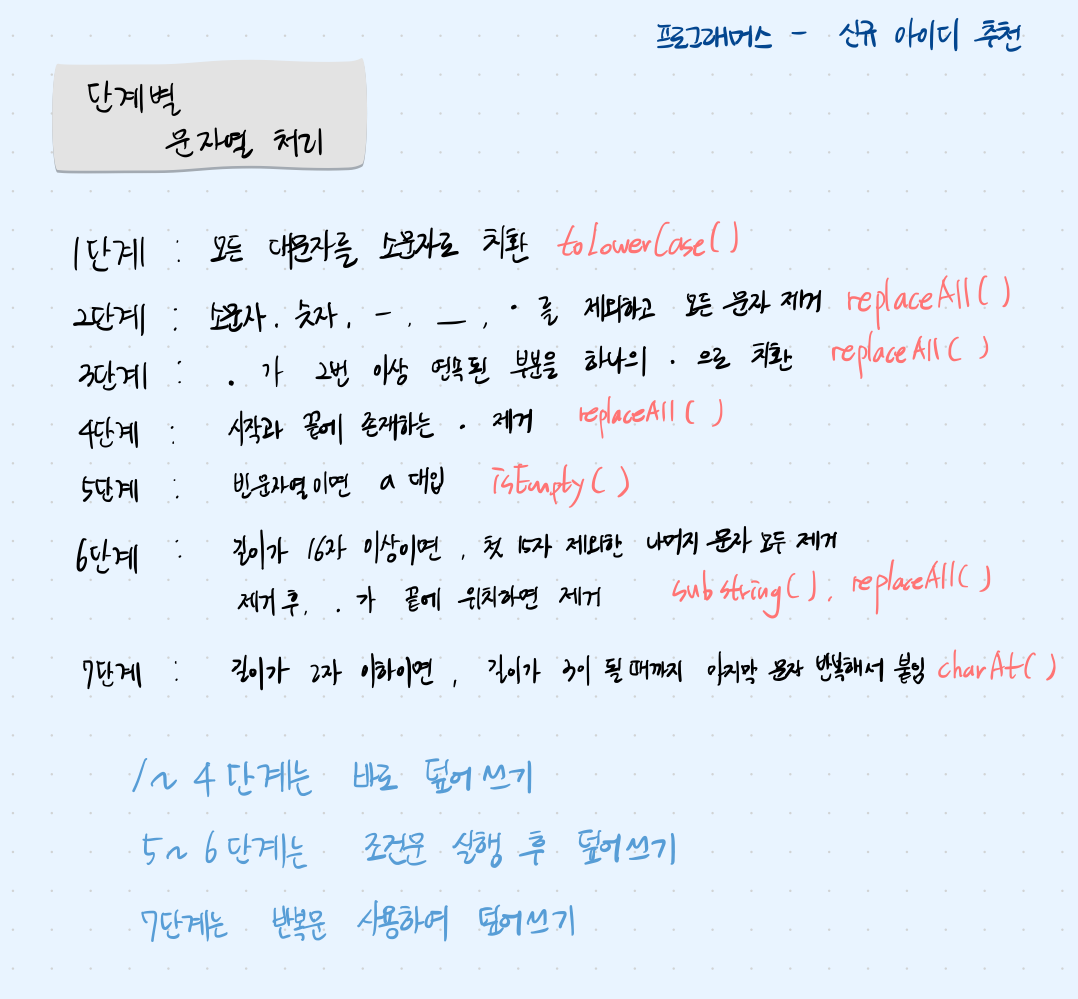 프로그래머스 - 신규 아이디 추천
단계별
문자열 처리
1단계 : 모든 대문자를 소문자로 치환 toLowerCase()
2단계 : 소문자, 숫자, -, _, . 를 제외하고 모든 문자 제거 replaceAll()
3단계 : . 가 2번 이상 연속된 부분을 하나의 . 으로 치환 replaceAll()
4단계 : 시작과 끝에 존재하는 . 제거 replaceAll()
5단계 : 빈문자열이면 a 대입 isEmpty()
6단계 : 길이가 16자 이상이면, 첫 15자 제외한 나머지 문자 모두 제거
제거 후, . 가 끝에 위치하면 제거 substring(), replaceAll()
7단계 : 길이가 2자 이하이면, 길이가 3이 될 때까지 마지막 문자 반복해서 붙임 charAt()
1~4단계는 바로 덮어쓰기
5~6단계는 조건문 실행 후 덮어쓰기
7단계는 반복문 사용하여 덮어쓰기